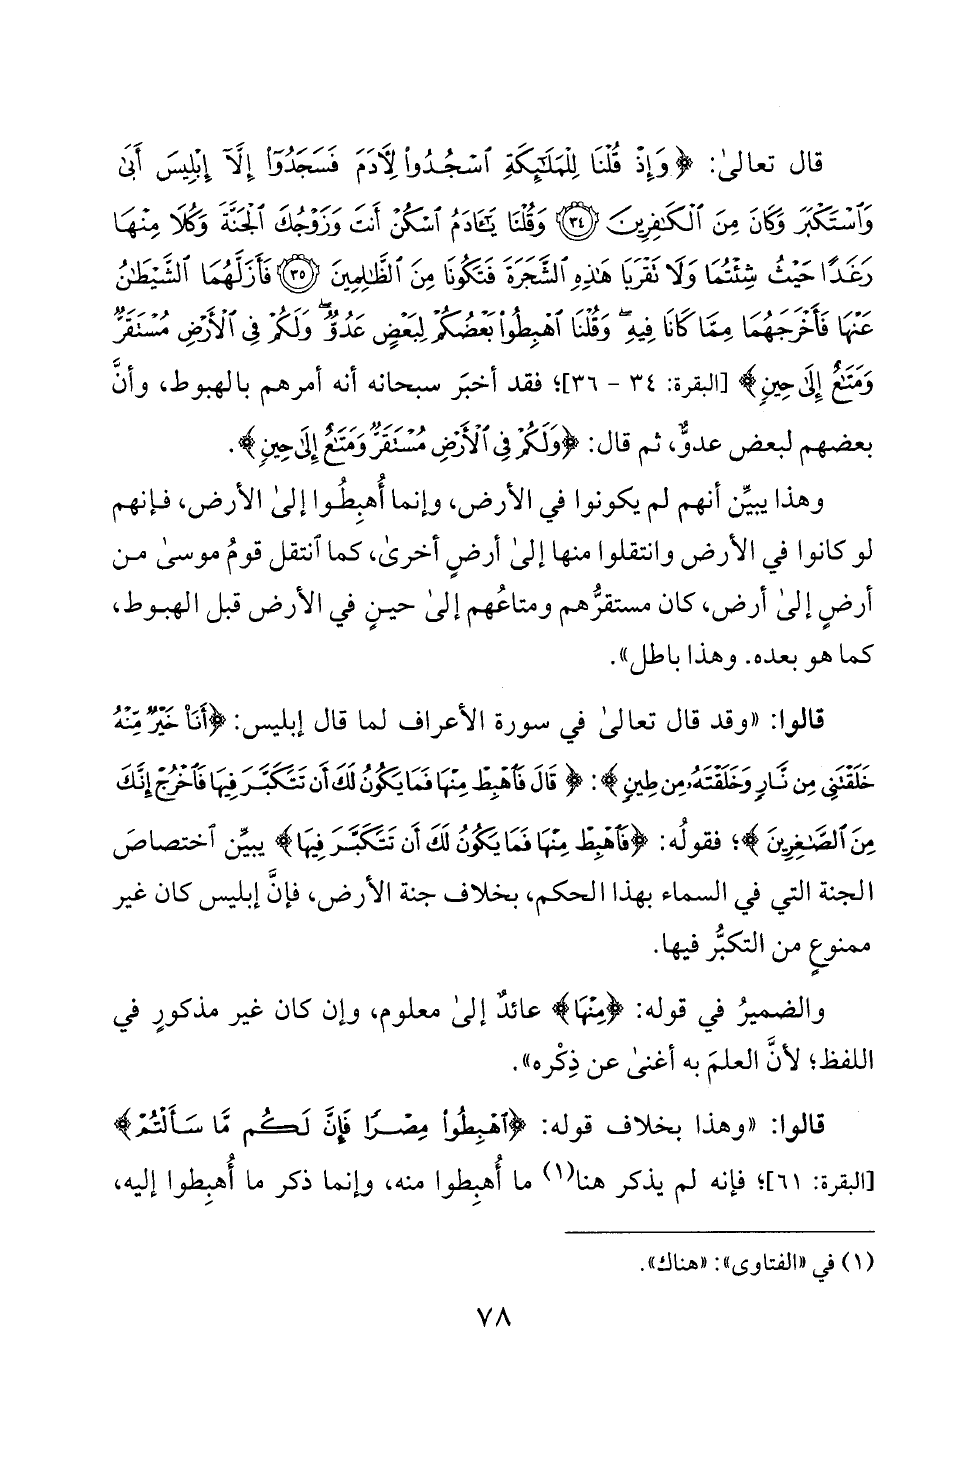 قال تعالىٰ: ﴿ وَإِذْ قُلْنَا لِلْمَلَٰٓئِكَةِ ٱسْجُدُوا۟ لِأَدَمَ فَسَجَدُوٓا۟ إِلَّآ إِبْلِيسَ أَبَىٰ
وَٱسْتَكْبَرَ وَكَانَ مِنَ ٱلْكَٰفِرِينَ ٣٤ وَقُلْنَا يَٰٓـَٔادَمُ ٱسْكُنْ أَنتَ وَزَوْجُكَ ٱلْجَنَّةَ وَكُلَا مِنْهَا
رَغَدًا حَيْثُ شِئْتُمَا وَلَا تَقْرَبَا هَٰذِهِ ٱلشَّجَرَةَ فَتَكُونَا مِنَ ٱلظَّٰلِمِينَ ٣٥ فَأَزَلَّهُمَا ٱلشَّيْطَٰنُ
عَنْهَا فَأَخْرَجَهُمَا مِمَّا كَانَا فِيهِ ۖ وَقُلْنَا ٱهْبِطُوا۟ بَعْضُكُمْ لِبَعْضٍ عَدُوٌّ ۖ وَلَكُمْ فِى ٱلْأَرْضِ مُسْتَقَرٌّ
وَمَتَٰعٌ إِلَىٰ حِينٍ ﴾ [البقرة: ٣٤ - ٣٦]؛ فقد أخبَر سبحانه أنه أمرهم بالهبوط، وأنَّ
بعضهم لبعض عدوٌّ، ثم قال: ﴿وَلَكُمْ فِى ٱلْأَرْضِ مُسْتَقَرٌّ وَمَتَٰعٌ إِلَىٰ حِينٍ ﴾.
وهذا يبيِّن أنهم لم يكونوا في الأرض، وإنما أُهبِطُوا إلىٰ الأرض، فإنهم
لو كانوا في الأرض وانتقلوا منها إلىٰ أرضٍ أخرىٰ، كما ٱنتقل قومُ موسىٰ من
أرضٍ إلىٰ أرض، كان مستقرُّهم ومتاعُهم إلىٰ حينٍ في الأرض قبل الهبوط،
كما هو بعده. وهذا باطل».
قالوا: «وقد قال تعالىٰ في سورة الأعراف لما قال إبليس: ﴿أَنَا۠ خَيْرٌ مِّنْهُ
خَلَقْتَنِى مِن نَّارٍ وَخَلَقْتَهُۥ مِن طِينٍ ﴾: ﴿ قَالَ فَٱهْبِطْ مِنْهَا فَمَا يَكُونُ لَكَ أَن تَتَكَبَّرَ فِيهَا فَٱخْرُجْ إِنَّكَ
مِنَ ٱلصَّٰغِرِينَ ﴾؛ فقولُه: ﴿فَٱهْبِطْ مِنْهَا فَمَا يَكُونُ لَكَ أَن تَتَكَبَّرَ فِيهَا﴾ يبيِّن ٱختصاصَ
الجنة التي في السماء بهذا الحكم، بخلاف جنة الأرض، فإنَّ إبليس كان غير
ممنوعٍ من التكبُّر فيها.
والضميرُ في قوله: ﴿مِنْهَا﴾ عائدٌ إلىٰ معلوم، وإن كان غير مذكورٍ في
اللفظ؛ لأنَّ العلمَ به أغنىٰ عن ذِكْره».
قالوا: «وهذا بخلاف قوله: ﴿ٱهْبِطُوا۟ مِصْرًا فَإِنَّ لَكُم مَّا سَأَلْتُمْ﴾
[البقرة: ٦١]؛ فإنه لم يذكر هنا(١) ما أُهبِطوا منه، وإنما ذكر ما أُهبِطوا إليه،
(١) في «الفتاوى»: «هناك».
٧٨